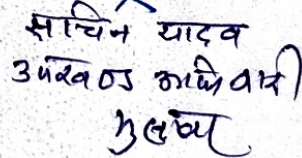 सचिन यादव
उपखण्ड अधिकारी